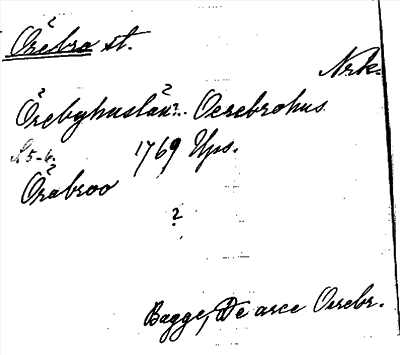 Örebro st.
Nrk.
Örebyhuslän?.. Oerebrohus.
1769 Ups.
Örabroo
?
Bagge, De arce Oerebr.